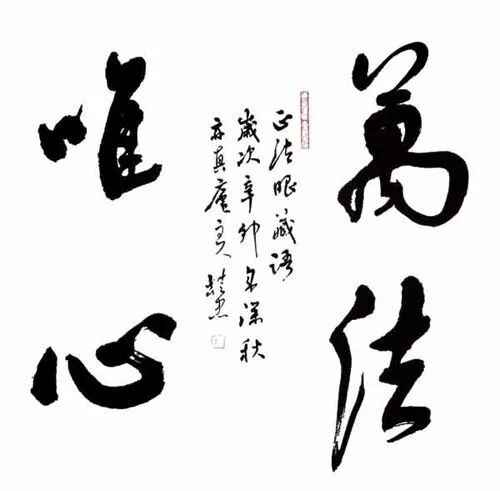 萬法
唯心
正法眼藏語
歲次辛卯年深秋
亦真庵主人